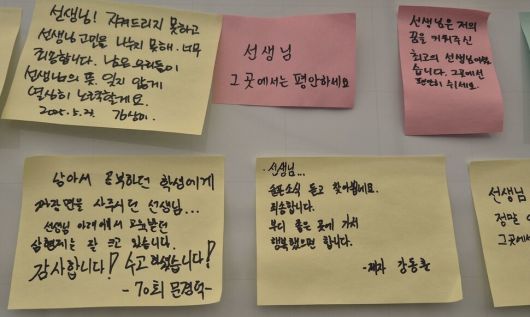 선생님! 지켜드리지 못하고
선생님 고민을 나누지 못해 너무
죄송합니다. 남은 우리들이
선생님의 뜻 잊지 않게
열심히 노력할게요.
2025.5.22.
선생님
그 곳에서는 평안하세요
선생님은 저의
꿈을 키워주신
최고의 선생님이셨
습니다. 그곳에선
편안히 쉬세요.
남아서 공부하던 학생에게
짜장면을 사주시던 선생님...
선생님 아래에서
삼형제는 잘 크고 있습니다.
감사합니다! 수고하셨습니다!
-70회 문경혁-
선생님...
슬픈소식 듣고 찾아뵙네요.
죄송합니다.
부디 좋은 곳에 가서
행복했으면 합니다.
-제자 강동훈
선생님
정말
그곳에서